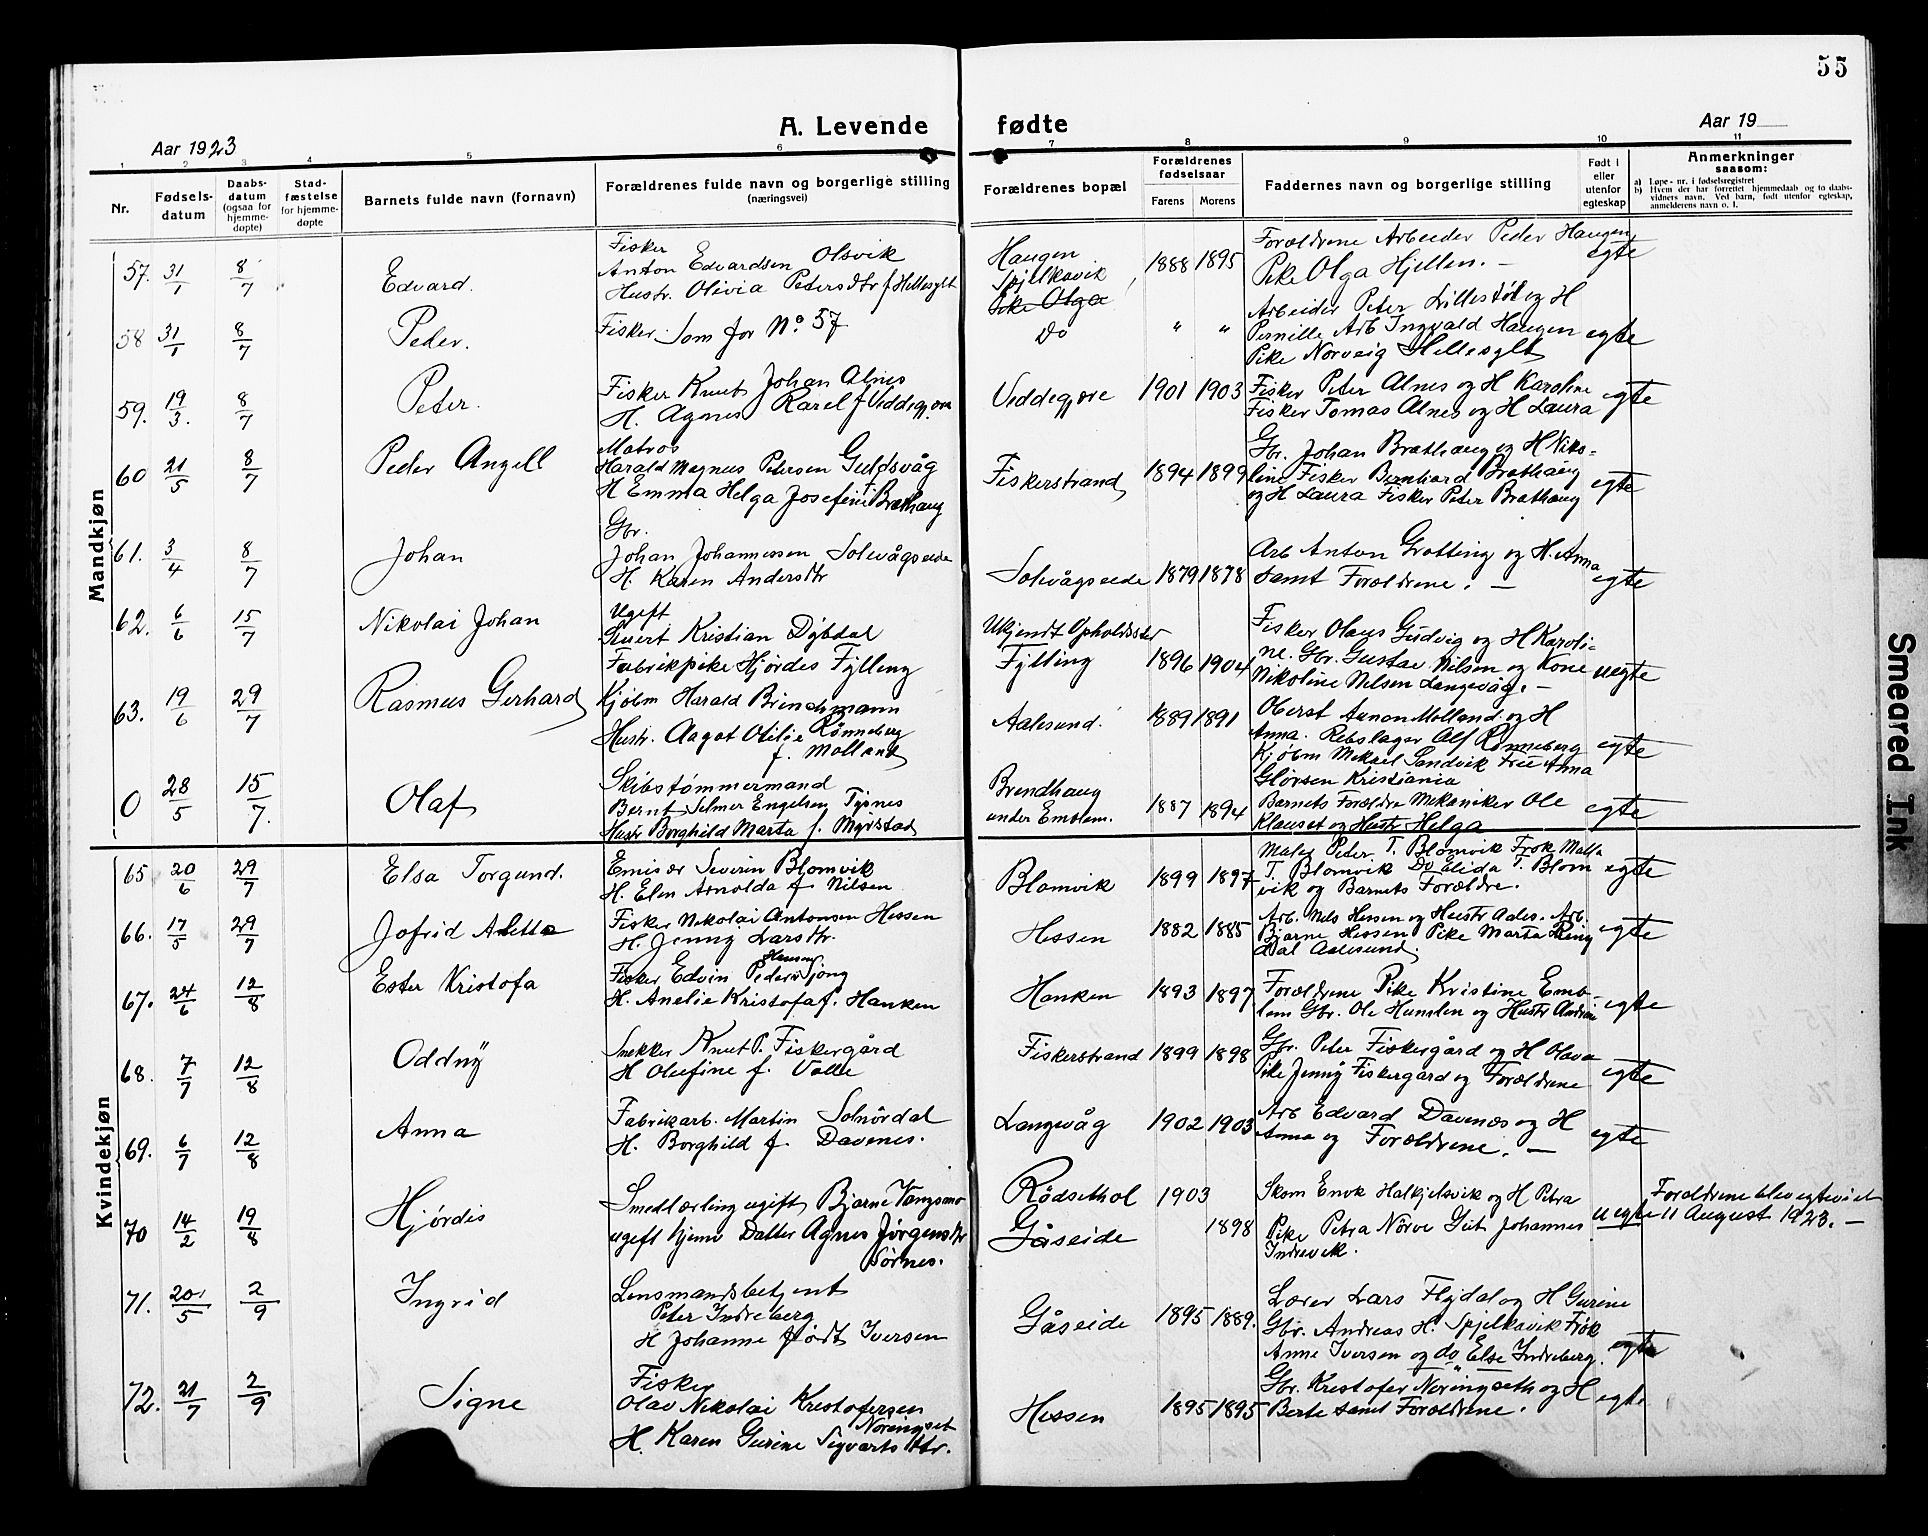 55
A. Levende fødte
Aar 1923
Aar 19
1 2 3 4 5 6 7 8 9 10 11
Nr.
Fødsels-
datum
Daabs-
datum
(ogsaa for
hjemme-
døpte)
Stad-
fæstelse
for hjemme-
døpte
Barnets fulde navn (fornavn)
Forældrenes fulde navn og borgerlige stilling
(næringsvei)
Forældrenes bopæl
Forældrenes
fødselsaar
Farens Morens
Faddernes navn og borgerlige stilling
Født i
eller
utenfor
egteskap
Anmerkninger
saasom:
a) Løpe-nr. i fødselsregistret
b) Hvem der har forrettet hjemmedaab og to daabs-
vidnets navn. Ved barn, født utenfor egteskap,
anmelderens navn o. l.
Mandkjøn
57. 31/1 8/7 Edvard.
Fisker
Anton Edvardsen Olsvik
Hustr. Olivia Petersdtr f Hellesylt
Haugen
Spjelkavik
Pike Olga
1888 1895
Forældrene Arbeider Peder Haugen
Pike Olga Hjellen. –
egte
58 31/1 8/7 Peder.
Fisker. Som for No 57
Do " "
Arbeider Peter Lillestöl og H
Pernille Arb Ingvald Haugen
Pike Norveig Hellesylt
egte
59. 19/3. 8/7 Peter.
Fisker Knut Johan Alnes
H. Agnes Karel f Veddegjære
Veddegjære 1901 1903
Fisker Peter Alnes og H Karoline
Fisker Tomas Alnes og H Laura
egte
60 21/5 8/7 Peder Angell
Matros
Harald Magnus Petersen Guldsvåg
H Emma Helga Josefine f Brathaug
Fiskerstrand 1894 1899
Gbr. Johan Brathaug og H Niko-
line Fisker Bernhard Brathaug
og H Laura Fisker Peter Brathaug
egte
61. 3/4 8/7 Johan
Gbr.
Johan Johannessen Solevågseide
H. Karen Andersdtr
Solevågseide 1879 1878
Arb Anton Grotting og H. Anna
samt Forældrene. –
egte
62. 6/6 15/7 Nikolai Johan
Ugift
Sivert Kristian Dybdal
Fabrikpike Hjördes Fylling
Ukjendt Opholdssted
Fylling 1896 1904
Fisker Olaus Gudvig og H Karoli-
ne. Gbr. Gustav Nilsen og Kone
Nikoline Nilsen Langevåg. –
uegte
63. 19/6 29/7 Rasmus Gerhard
Kjöbm Harald Brinchmann
Hustr. Aagot Otilie Rönneberg
f. Molland
Aalesund. 1889 1891
Oberst Aanon Molland og H
Anna. Rebslager Alf Rönneberg
Kjöbm Mekael Sandvik Frue Anna
Glörsen Kristiania
egte
0 28/5 15/7. Olaf
Skibstømmermand
Bernt Selmer Engelsen Tynes
Hustr Borghild Marta f. Myrstad
Brendhaug
under Emblem. 1887 1894
Barnets Forældre Mekaniker Ole
Klauset og Hustr Helga
egte
Kvindekjøn
65 20/6 29/7 Elsa Torgund.
Emisær Severin Blomvik
H. Elen Arnolda f. Nilsen
Blomvik 1899 1897
Maler Peter T. Blomvik Frøk Malla
T. Blomvik Do Elida T. Blom
vik og Barnets Forældre.
egte
66. 17/5 29/7 Jofrid Aletta
Fisker Nikolai Antonsen Hessen
H. Jenny Larsdtr.
Hessen 1882 1885
Arb. Nils Hessen og Hustr Aales. Arb.
Bjarne Hessen Pike Marta Ring
dal Aalesund.
egte
67. 24/6 12/8 Ester Kristofa
Hansen
Fisker Edvin Peder Sjong
H. Anelie Kristofa f. Hanken
Hanken 1893 1897
Forældrene Pike Kristine Emb-
lem Gbr. Ole Humlen og Hustr Andrine
egte
68. 7/7 12/8 Oddny
Snekker Knut P. Fiskergård
H Olufine f. Valle
Fiskerstrand 1899 1898
Gbr. Peter Fiskergård og H Olava
Pike Jenny Fiskergård og Forældrene
egte
69. 6/7 12/8 Anna
Fabrikarb. Martin Solnördal
H. Borghild f Davenes.
Langevåg 1902 1903
Arb Edvard Davenæs og H
Anna og Forældrene. –
egte
70 14/2 19/8 Hjördis
Smedlærling ugift Bjarne Vangsmo
ugift hjemv Datter Agnes Jörgensdtr
Sörnes.
Rödsethol 1903
Gåseide 1898
Skom Enok Halkjelsvik og H Petra
Pike Petra Nörve Gut Johannes
Indrevik.
uegte
Forældrene blev egteviet
11 August 1923. –
71. 20/5 2/9 Ingrid
Lensmandsbetjent
Peter Indreberg
H Johanne födt Iversen
Gåseide 1895 1889.
Lærer Lars Flydal og H Gurine
Gbr. Andreas H. Spjelkavik Frøk
Anne Iversen og do Else Indreberg.
egte
72. 21/7 2/9 Signe
Fisker
Olav Nikolai Kristofersen
Noringset
H. Karen Gurine Sigvartsdtr.
Hessen 1895 1895
Gbr. Kristofer Noringseth og H
Berte samt Forældrene.
egte
Smeared Ink